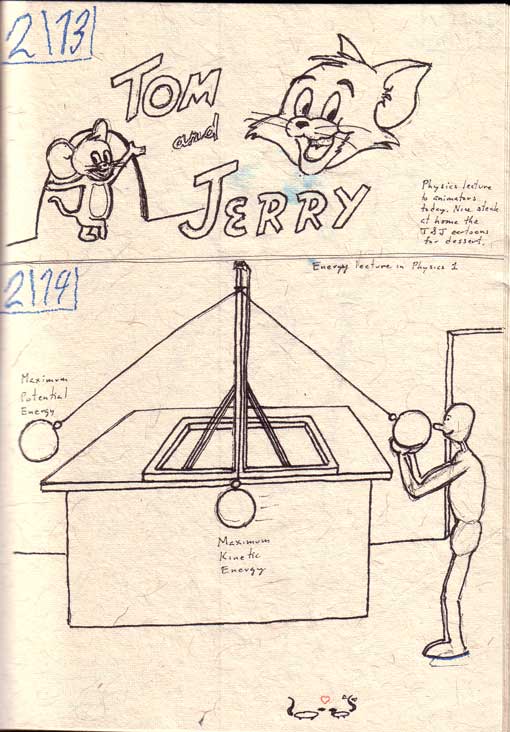 2/13
TOM
and
JERRY
Physics lecture
to animators
today. Nice steak
at home the
T&J cartoons
for dessert.
2/14
Energy lecture in Physics 1
Maximum
Potential
Energy
Maximum
Kinetic
Energy